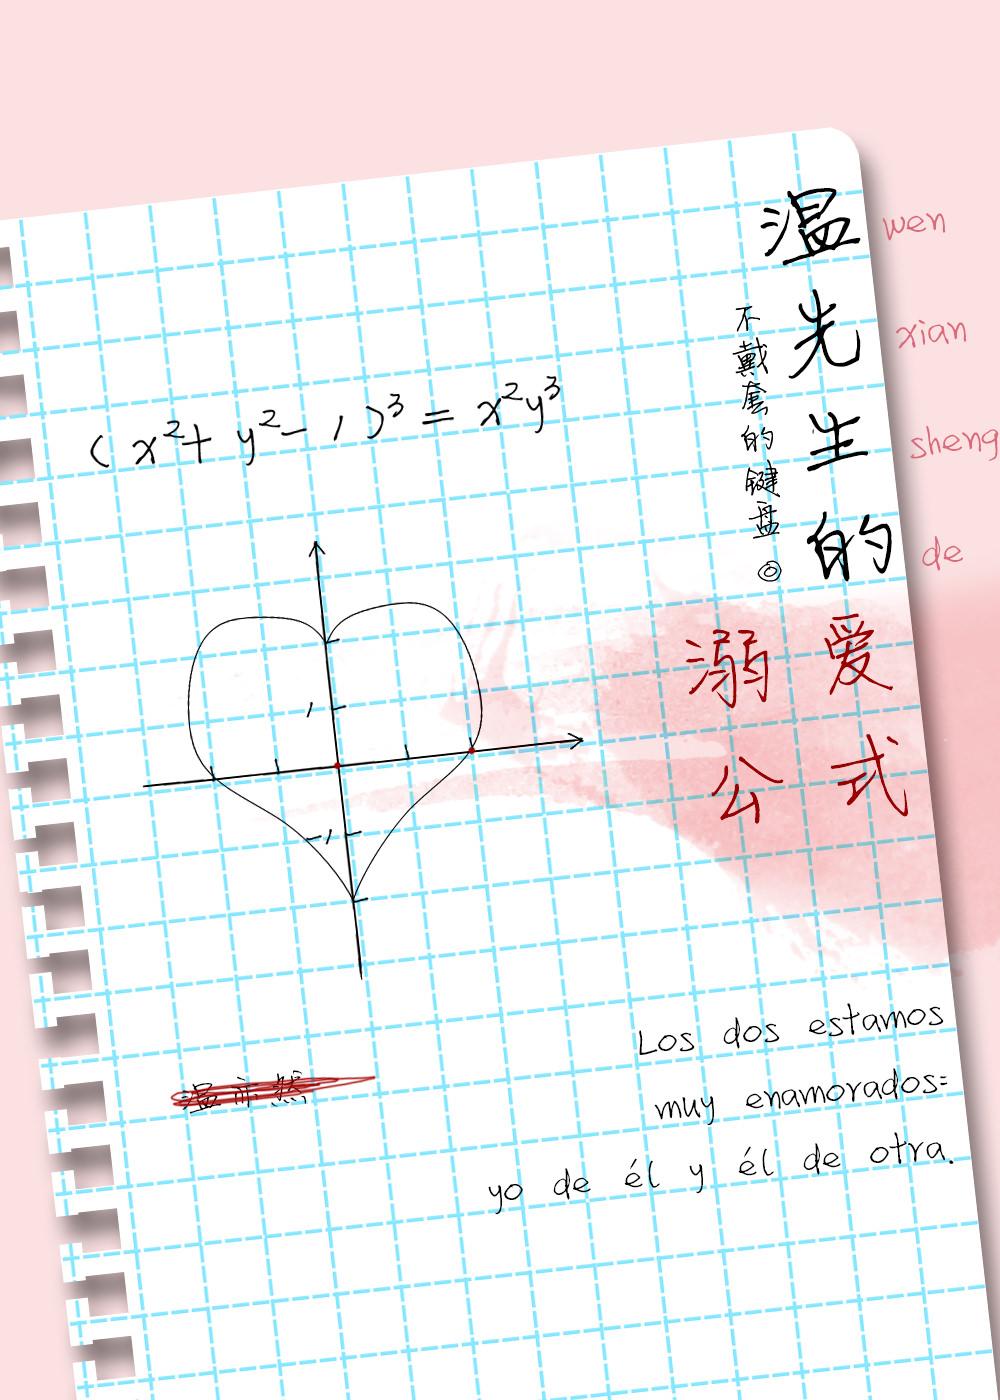 温先生的
溺爱
公式
不戴套的键盘◎
wen
xian
sheng
de
(x²+y²-1)³=x²y³
1
-1
温亦然
Los dos estamos
muy enamorados:
yo de él y él de otra.